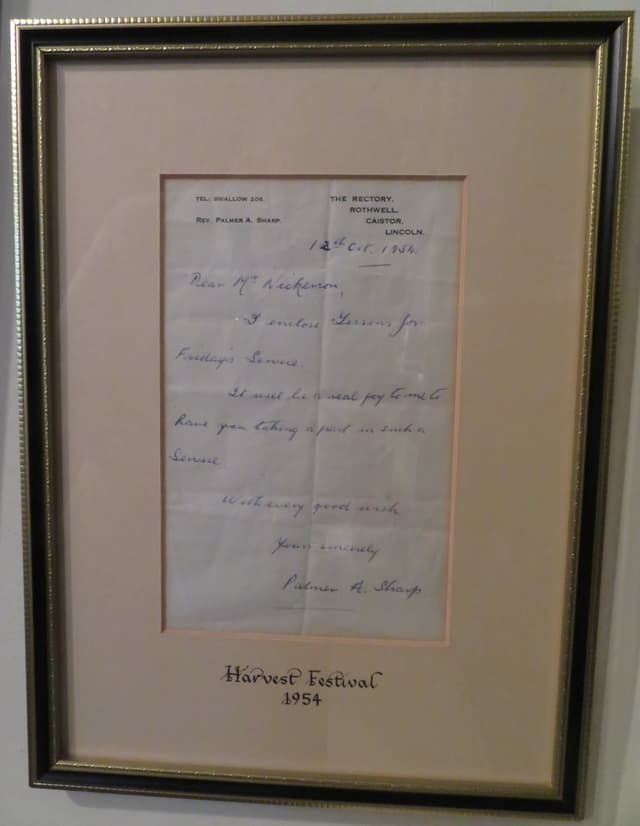 TEL: SWALLOW 205.
REV. PALMER A. SHARP.
THE RECTORY,
ROTHWELL,
CAISTOR,
LINCOLN.
12th Oct. 1954.
Dear Mr Nickerson,
I enclose Lessons for
Friday's Service.
It will be a real joy to me to
have you taking a part in such a
Service
With every good wish
Yours sincerely
Palmer A. Sharp
Harvest Festival
1954